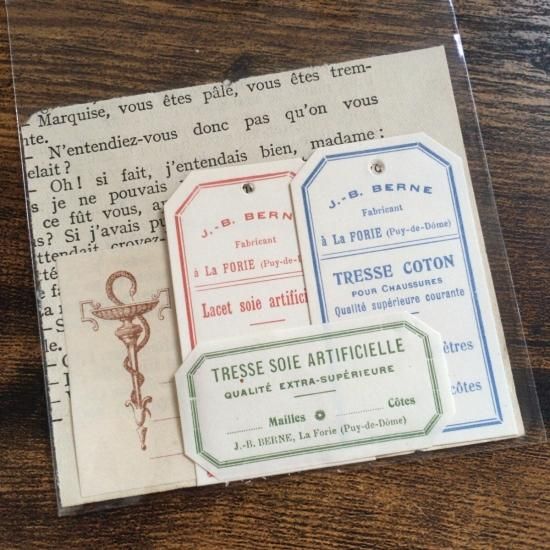 Marquise, vous êtes pâle, vous êtes trem-
nte.
— N'entendiez-vous donc pas qu'on vous
elait ?
— Oh ! si fait, j'entendais bien, madame :
s je ne pouvais
ce fût vous,
s ? Si j'avais
ttendait croyez-
J.-B. BERN
Fabricant
à LA FORIE (Puy-de-
Lacet soie artifici
J.-B. BERNE
Fabricant
à LA FORIE (Puy-de-Dôme)
TRESSE COTON
POUR CHAUSSURES
Qualité supérieure courante
ètres
côtes
TRESSE SOIE ARTIFICIELLE
QUALITÉ EXTRA-SUPÉRIEURE
Mailles Côtes
J.-B. BERNE, La Forie (Puy-de-Dôme)